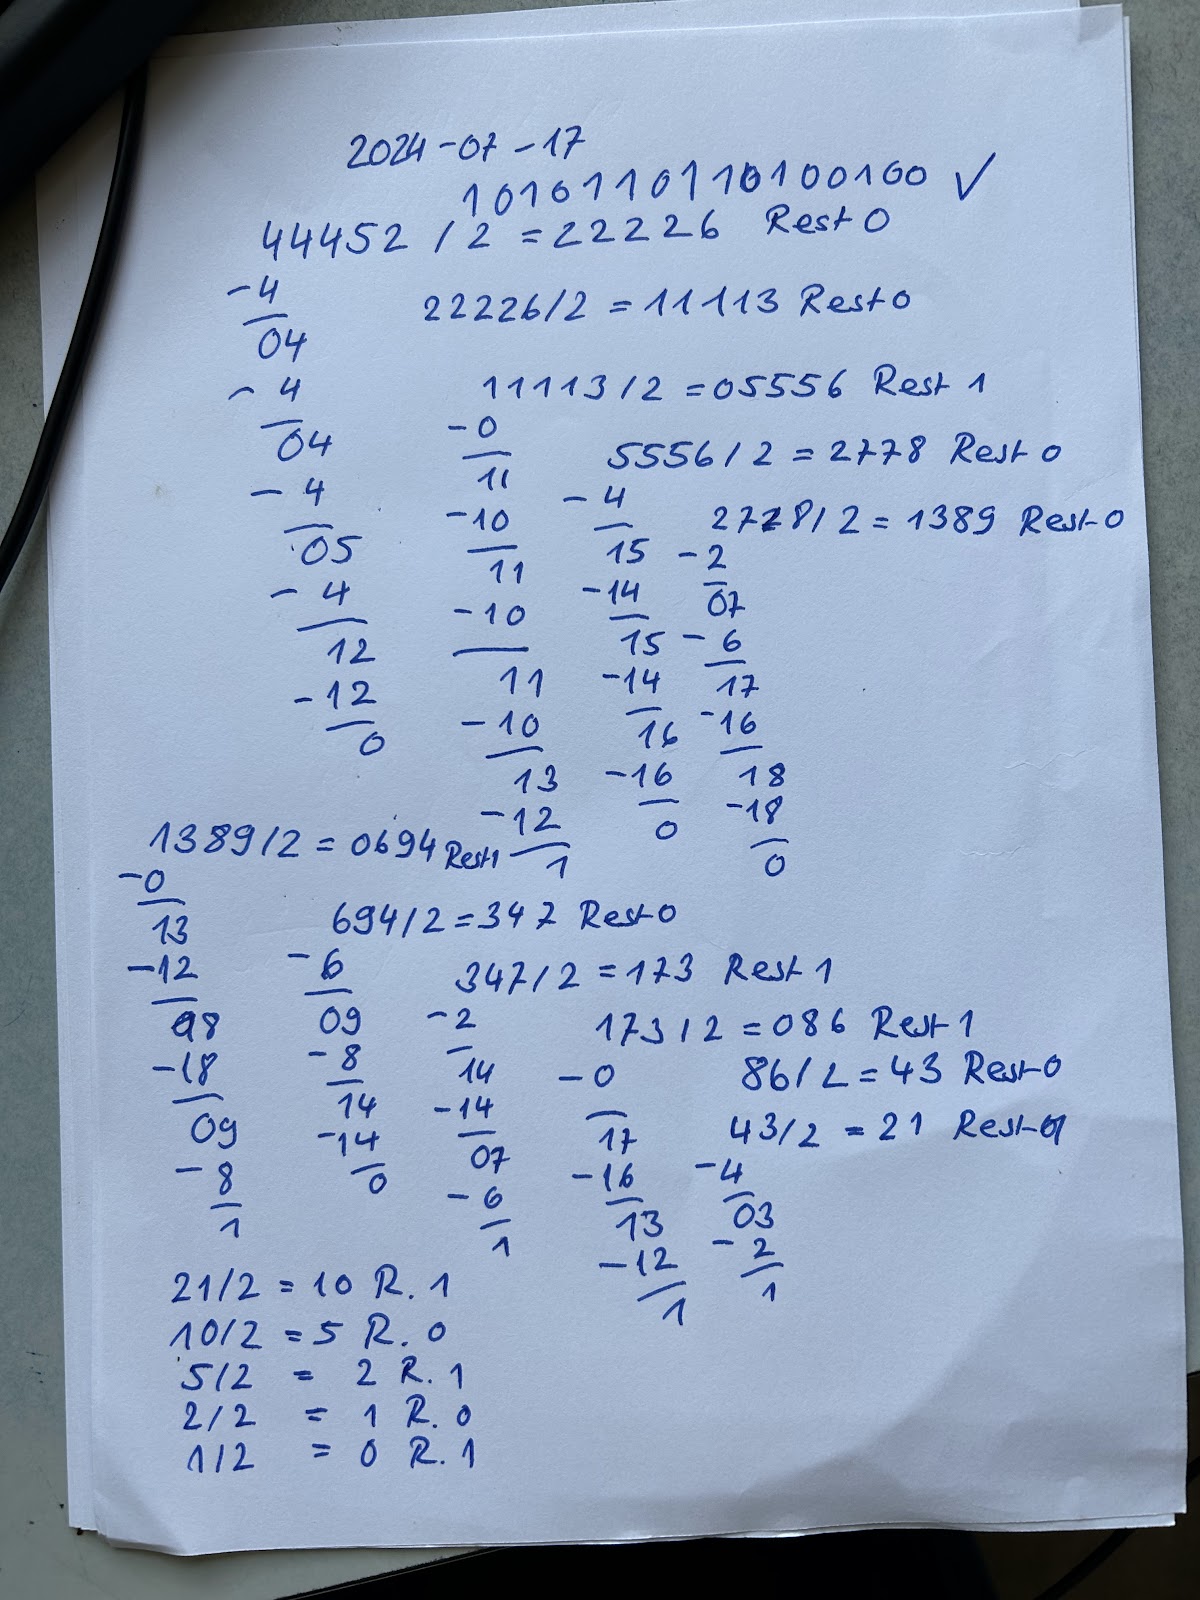 2024-07-17
1010110110100100 ✓
44452 / 2 = 22226 Rest 0
-4
04
-4
04
-4
05
-4
12
-12
0
22226/2 = 11113 Rest 0
11113/2 = 05556 Rest 1
-0
11
-10
11
-10
11
-10
13
-12
1
5556/2 = 2778 Rest 0
-4
15
-14
15
-14
16
-16
0
2778/2 = 1389 Rest 0
-2
07
-6
17
-16
18
-18
0
1389/2 = 0694 Rest 1
-0
13
-12
18
-18
09
-8
1
694/2 = 347 Rest 0
-6
09
-8
14
-14
0
347/2 = 173 Rest 1
-2
14
-14
07
-6
1
173/2 = 086 Rest 1
-0
17
-16
13
-12
1
86/2 = 43 Rest 0
43/2 = 21 Rest 1
-4
03
-2
1
21/2 = 10 R. 1
10/2 = 5 R. 0
5/2 = 2 R. 1
2/2 = 1 R. 0
1/2 = 0 R. 1